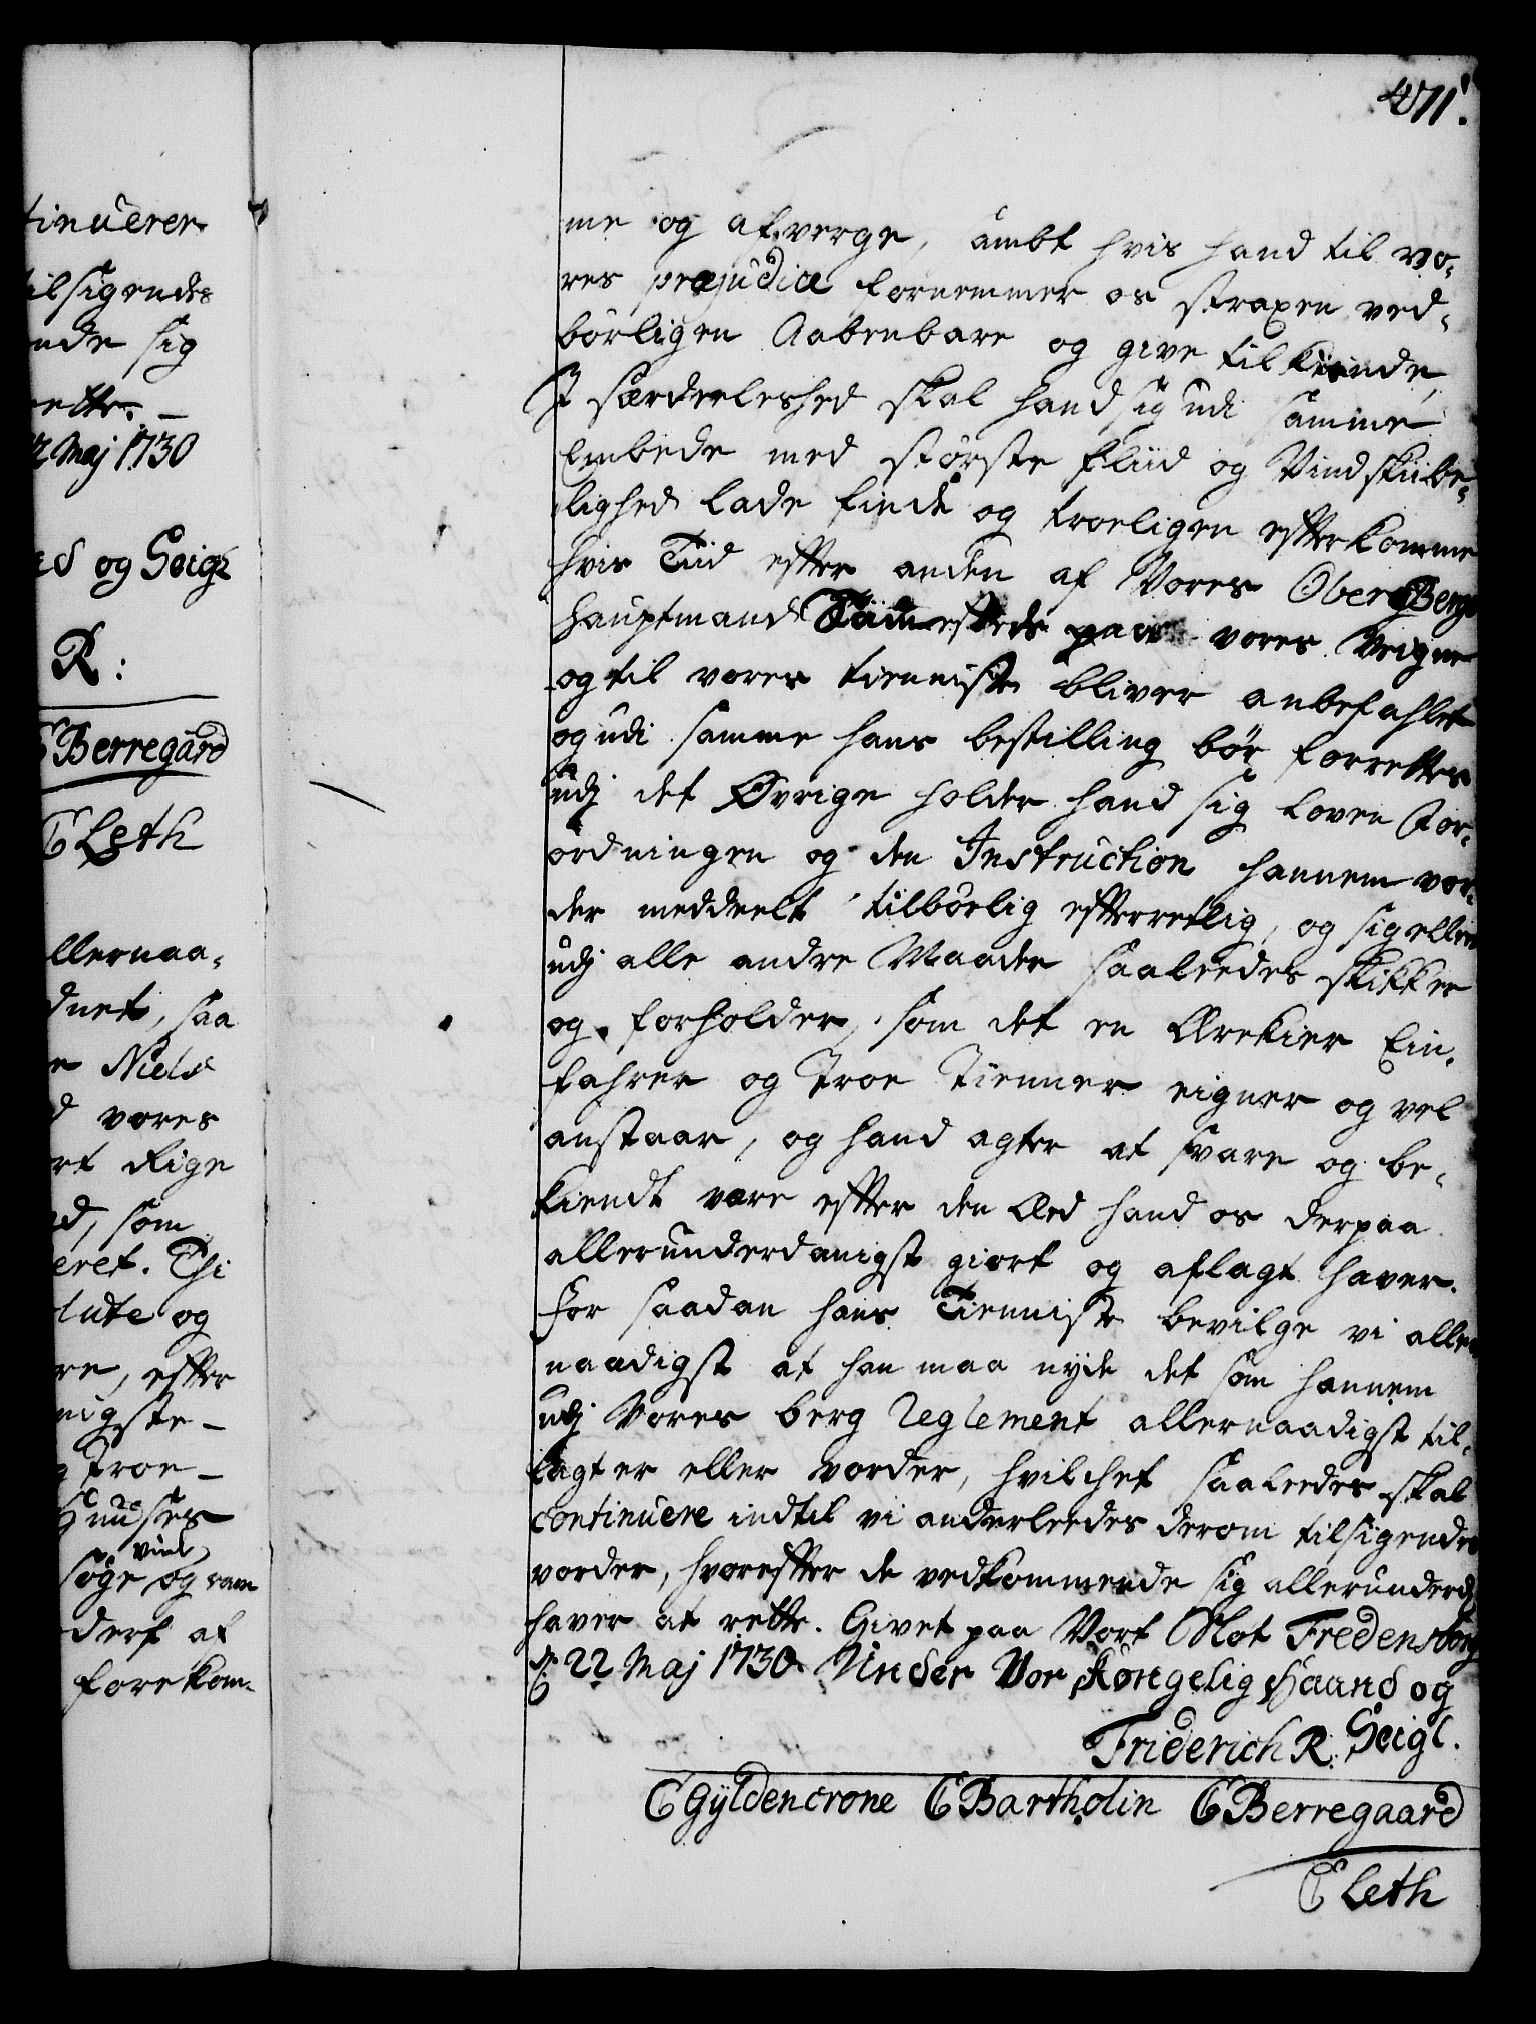 471.
tinuerer
ilsigendes
nde sig
rette. –
22 Maj 1730
og Seigl
R:
Berregård
C Leth
llernaa-
dnet, saa
Niels
vores
rt Rige
d, som
eret. Thi
lute og
re, effter
nigste –
troe –
Huuses
vind
söge og ram
dert af
forekom-
me og afverge, ambt hvis hand til vo-
res præjudice fornemmer os straxen ved-
börligen Aabenbare og give tilkiende,
I særdeeleshed skal hand sig udi samme
Embede med störste fliid og Vindskibe-
lighed lade finde og troeligen efterkomme
hvis Tiid effter anden af Vores Ober Berg
hauptmand Sammesteds paa vores Veigne
og til vores tienniste bliver anbefahlet
og udi samme hans bestilling bör forrettes
udj det Øvrige holder hand sig loven For-
ordningen og den Instruction hannem vor-
der meddeelt tilbörlig effterretlig, og sig ellers
udj alle andre Maader saaleedes skikker
og forholder, som det en Ærekier Ein-
fahrer og Troe Tienner eigner og vel
anstaar, og hand agter at svare og be-
kiendt være effter den Æed hand os derpaa
allerunderdanigst giort og aflagt haver.
For saadan hans Tienniste bevilge vi aller
naadigst at han maa nyde det som hannem
udj Vores berg Reglement allernaadigst til-
lagt er eller vorder, hvilchet saaleedes skal
continuere indtil vi anderleedes derom tilsigendes
vorder, hvoreffter de vedkommende sig allerunderd
haver at rette. Givet paa Vort Slot Fredensborg
d: 22 Maj 1730. Under Vor Kongelig Haand og
Seigl.
Friderich R.
C Gyldencrone C Bartholin C Berregaard
C Leth